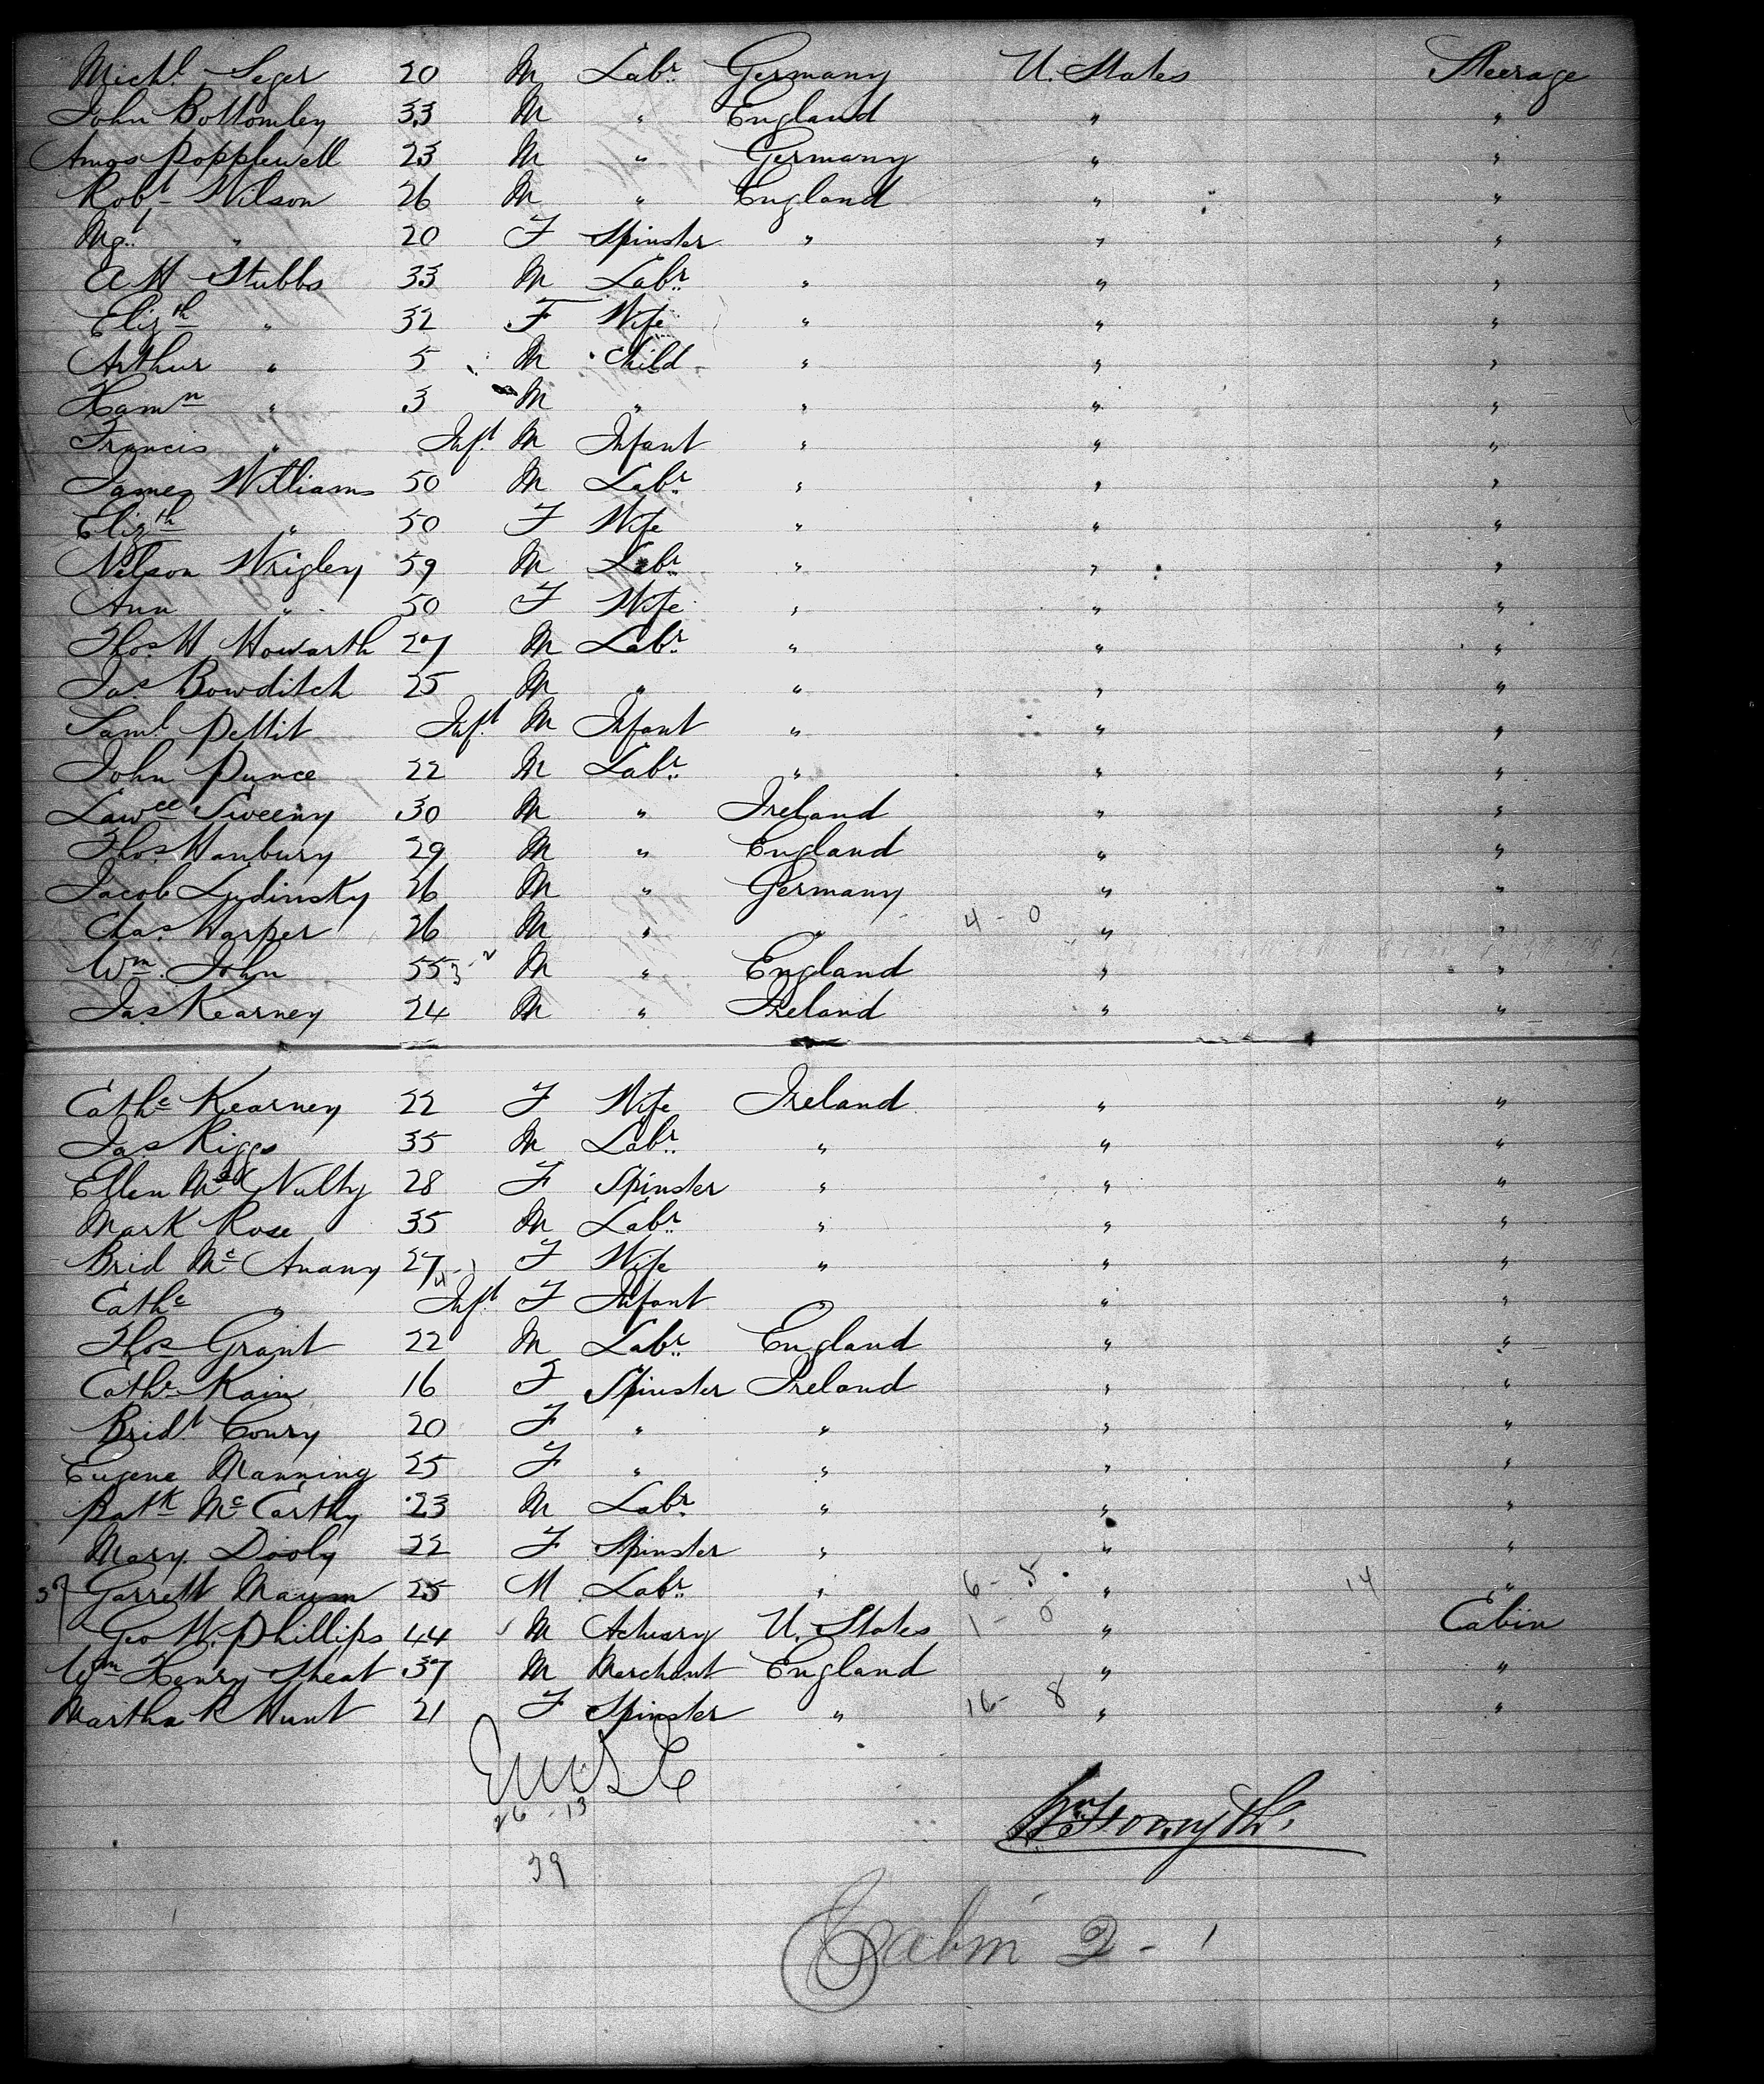 Michl Seger 20 M Labr. Germany U. States Steerage
John Bottomley 33 M " England " "
Amos Popplewell 23 M " Germany " "
Robt Wilson 26 M " England " "
Mgt " 20 F Spinster " " "
A H Stubbs 33 M Labr. " " "
Elizth " 32 F Wife " " "
Arthur " 5 M Child " " "
Hamn " 3 M " " " "
Francis " Inft. M Infant " " "
James Williams 50 M Labr. " " "
Elizth " 50 F Wife " " "
Nelson Wrigley 59 M Labr. " " "
Ann " 50 F Wife " " "
Thos H Howarth 27 M Labr. " " "
Jas Bowditch 25 M " " " "
Saml Pettit Inft. M Infant " " "
John Punce 22 M Labr. " " "
Lawce Sweeny 30 M " Ireland " "
Thos Hanbury 29 M " England " "
Jacob Lydinsky 26 M " Germany " "
Chas Harper 26 M " " 4 - 0 " "
Wm. John 55 M " England " "
Jas Kearney 24 M " Ireland " "
Cathe Kearney 22 F Wife Ireland " "
Jas Riggs 35 M Labr. " " "
Ellen Mc Nulty 28 F Spinster " " "
Mark Rose 35 M Labr. " " "
Brid Mc Anany 27 F Wife " " "
Cathe " Inft. F Infant " " "
Thos Grant 22 M Labr. England " "
Cathe Kain 16 F Spinster Ireland " "
Bridt. Conry 20 F " " " "
Eugene Manning 25 F " " " "
Patk Mc Carthy 23 M Labr. " " "
Mary Dooly 22 F Spinster " " "
Garrett Maum 25 M Labr. " 6 - 5 " 14 "
Geo W. Phillips 44 M Actuary U. States 1 - 0 " Cabin
Wm Henry Theat 37 M Merchant England " "
Martha R Hunt 21 F Spinster " 16 - 8 " "
26 - 13
Wm Forsyth
39
Cabin 2 - 1